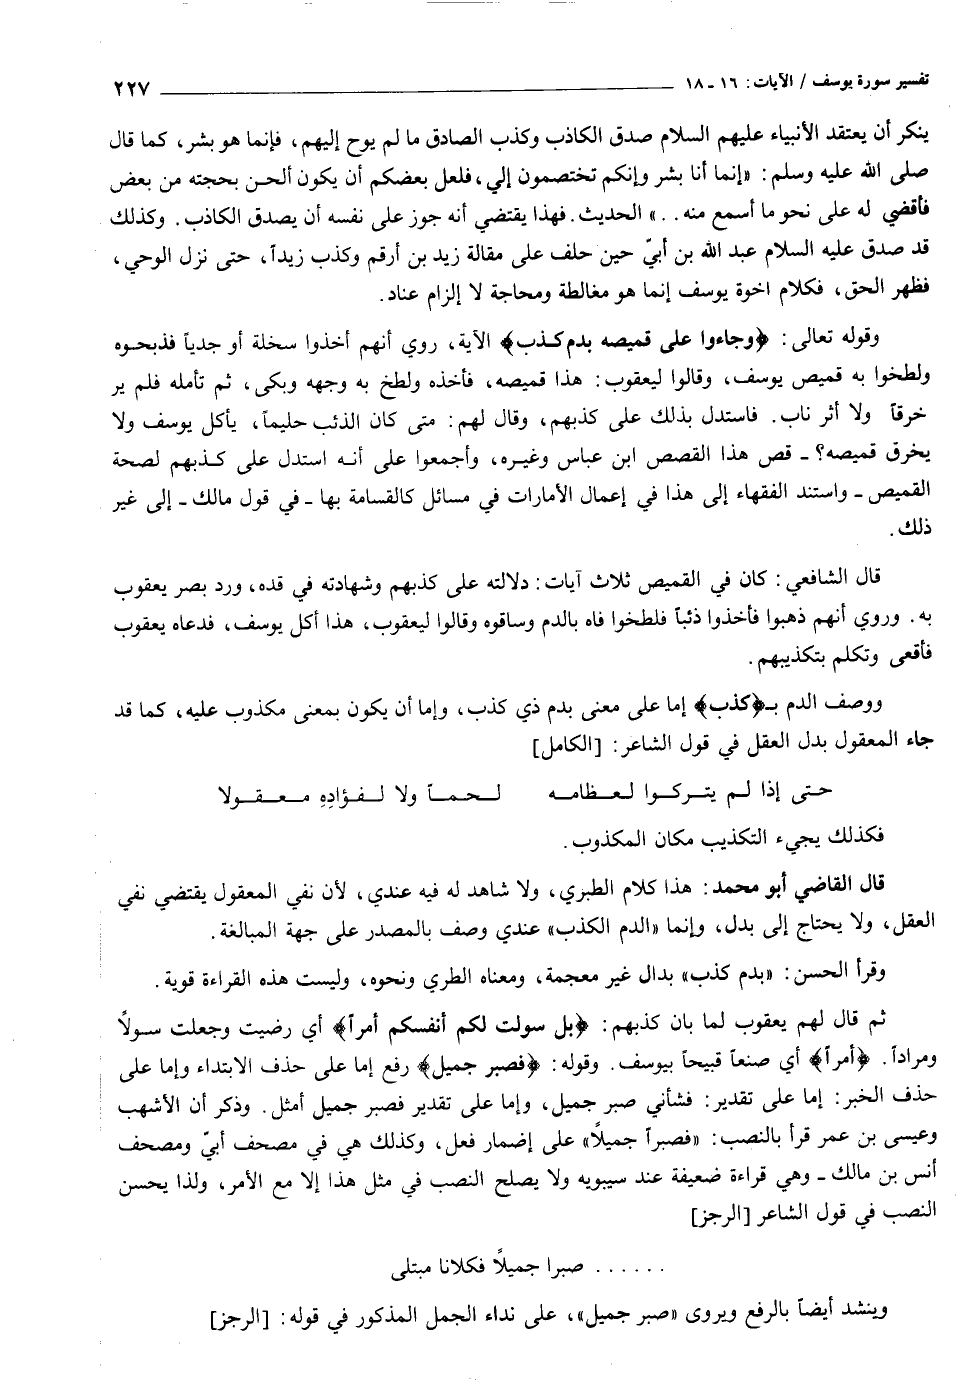 تفسير سورة يوسف / الآيات: ١٦ ـ ١٨ ٢٢٧
ينكر أن يعتقد الأنبياء عليهم السلام صدق الكاذب وكذب الصادق ما لم يوح إليهم، فإنما هو بشر، كما قال
صلى الله عليه وسلم: «إنما أنا بشر وإنكم تختصمون إلي، فلعل بعضكم أن يكون ألحن بحجته من بعض
فأقضي له على نحو ما أسمع منه..» الحديث. فهذا يقتضي أنه جوز على نفسه أن يصدق الكاذب. وكذلك
قد صدق عليه السلام عبد الله بن أبيّ حين حلف على مقالة زيد بن أرقم وكذب زيداً، حتى نزل الوحي،
فظهر الحق، فكلام اخوة يوسف إنما هو مغالطة ومحاجة لا إلزام عناد.
وقوله تعالى: ﴿وجاءوا على قميصه بدم كذب﴾ الآية، روي أنهم أخذوا سخلة أو جدياً فذبحوه
ولطخوا به قميص يوسف، وقالوا ليعقوب: هذا قميصه، فأخذه ولطخ به وجهه وبكى، ثم تأمله فلم ير
خرقاً ولا أثر ناب. فاستدل بذلك على كذبهم، وقال لهم: متى كان الذئب حليماً، يأكل يوسف ولا
يخرق قميصه؟ ـ قص هذا القصص ابن عباس وغيره، وأجمعوا على أنه استدل على كذبهم لصحة
القميص ـ واستند الفقهاء إلى هذا في إعمال الأمارات في مسائل كالقسامة بها ـ في قول مالك ـ إلى غير
ذلك.
قال الشافعي: كان في القميص ثلاث آيات: دلالته على كذبهم وشهادته في قده، ورد بصر يعقوب
به. وروي أنهم ذهبوا فأخذوا ذئباً فلطخوا فاه بالدم وساقوه وقالوا ليعقوب، هذا أكل يوسف، فدعاه يعقوب
فأقعى وتكلم بتكذيبهم.
ووصف الدم بـ﴿كذب﴾ إما على معنى بدم ذي كذب، وإما أن يكون بمعنى مكذوب عليه، كما قد
جاء المعقول بدل العقل في قول الشاعر: [الكامل]
حتى إذا لم يتركوا لعظامه لحماً ولا لفؤادِهِ معقولا
فكذلك يجيء التكذيب مكان المكذوب.
قال القاضي أبو محمد: هذا كلام الطبري، ولا شاهد له فيه عندي، لأن نفي المعقول يقتضي نفي
العقل، ولا يحتاج إلى بدل، وإنما «الدم الكذب» عندي وصف بالمصدر على جهة المبالغة.
وقرأ الحسن: «بدم كذب» بدال غير معجمة، ومعناه الطري ونحوه، وليست هذه القراءة قوية.
ثم قال لهم يعقوب لما بان كذبهم: ﴿بل سولت لكم أنفسكم أمراً﴾ أي رضيت وجعلت سولاً
ومراداً. ﴿أمراً﴾ أي صنعاً قبيحاً بيوسف. وقوله: ﴿فصبر جميل﴾ رفع إما على حذف الابتداء وإما على
حذف الخبر: إما على تقدير: فشأني صبر جميل، وإما على تقدير فصبر جميل أمثل. وذكر أن الأشهب
وعيسى بن عمر قرأ بالنصب: «فصبراً جميلاً» على إضمار فعل، وكذلك هي في مصحف أبيّ ومصحف
أنس بن مالك ـ وهي قراءة ضعيفة عند سيبويه ولا يصلح النصب في مثل هذا إلا مع الأمر، ولذا يحسن
النصب في قول الشاعر [الرجز]
...... صبرا جميلاً فكلانا مبتلى
وينشد أيضاً بالرفع ويروى «صبر جميل»، على نداء الجمل المذكور في قوله: [الرجز]